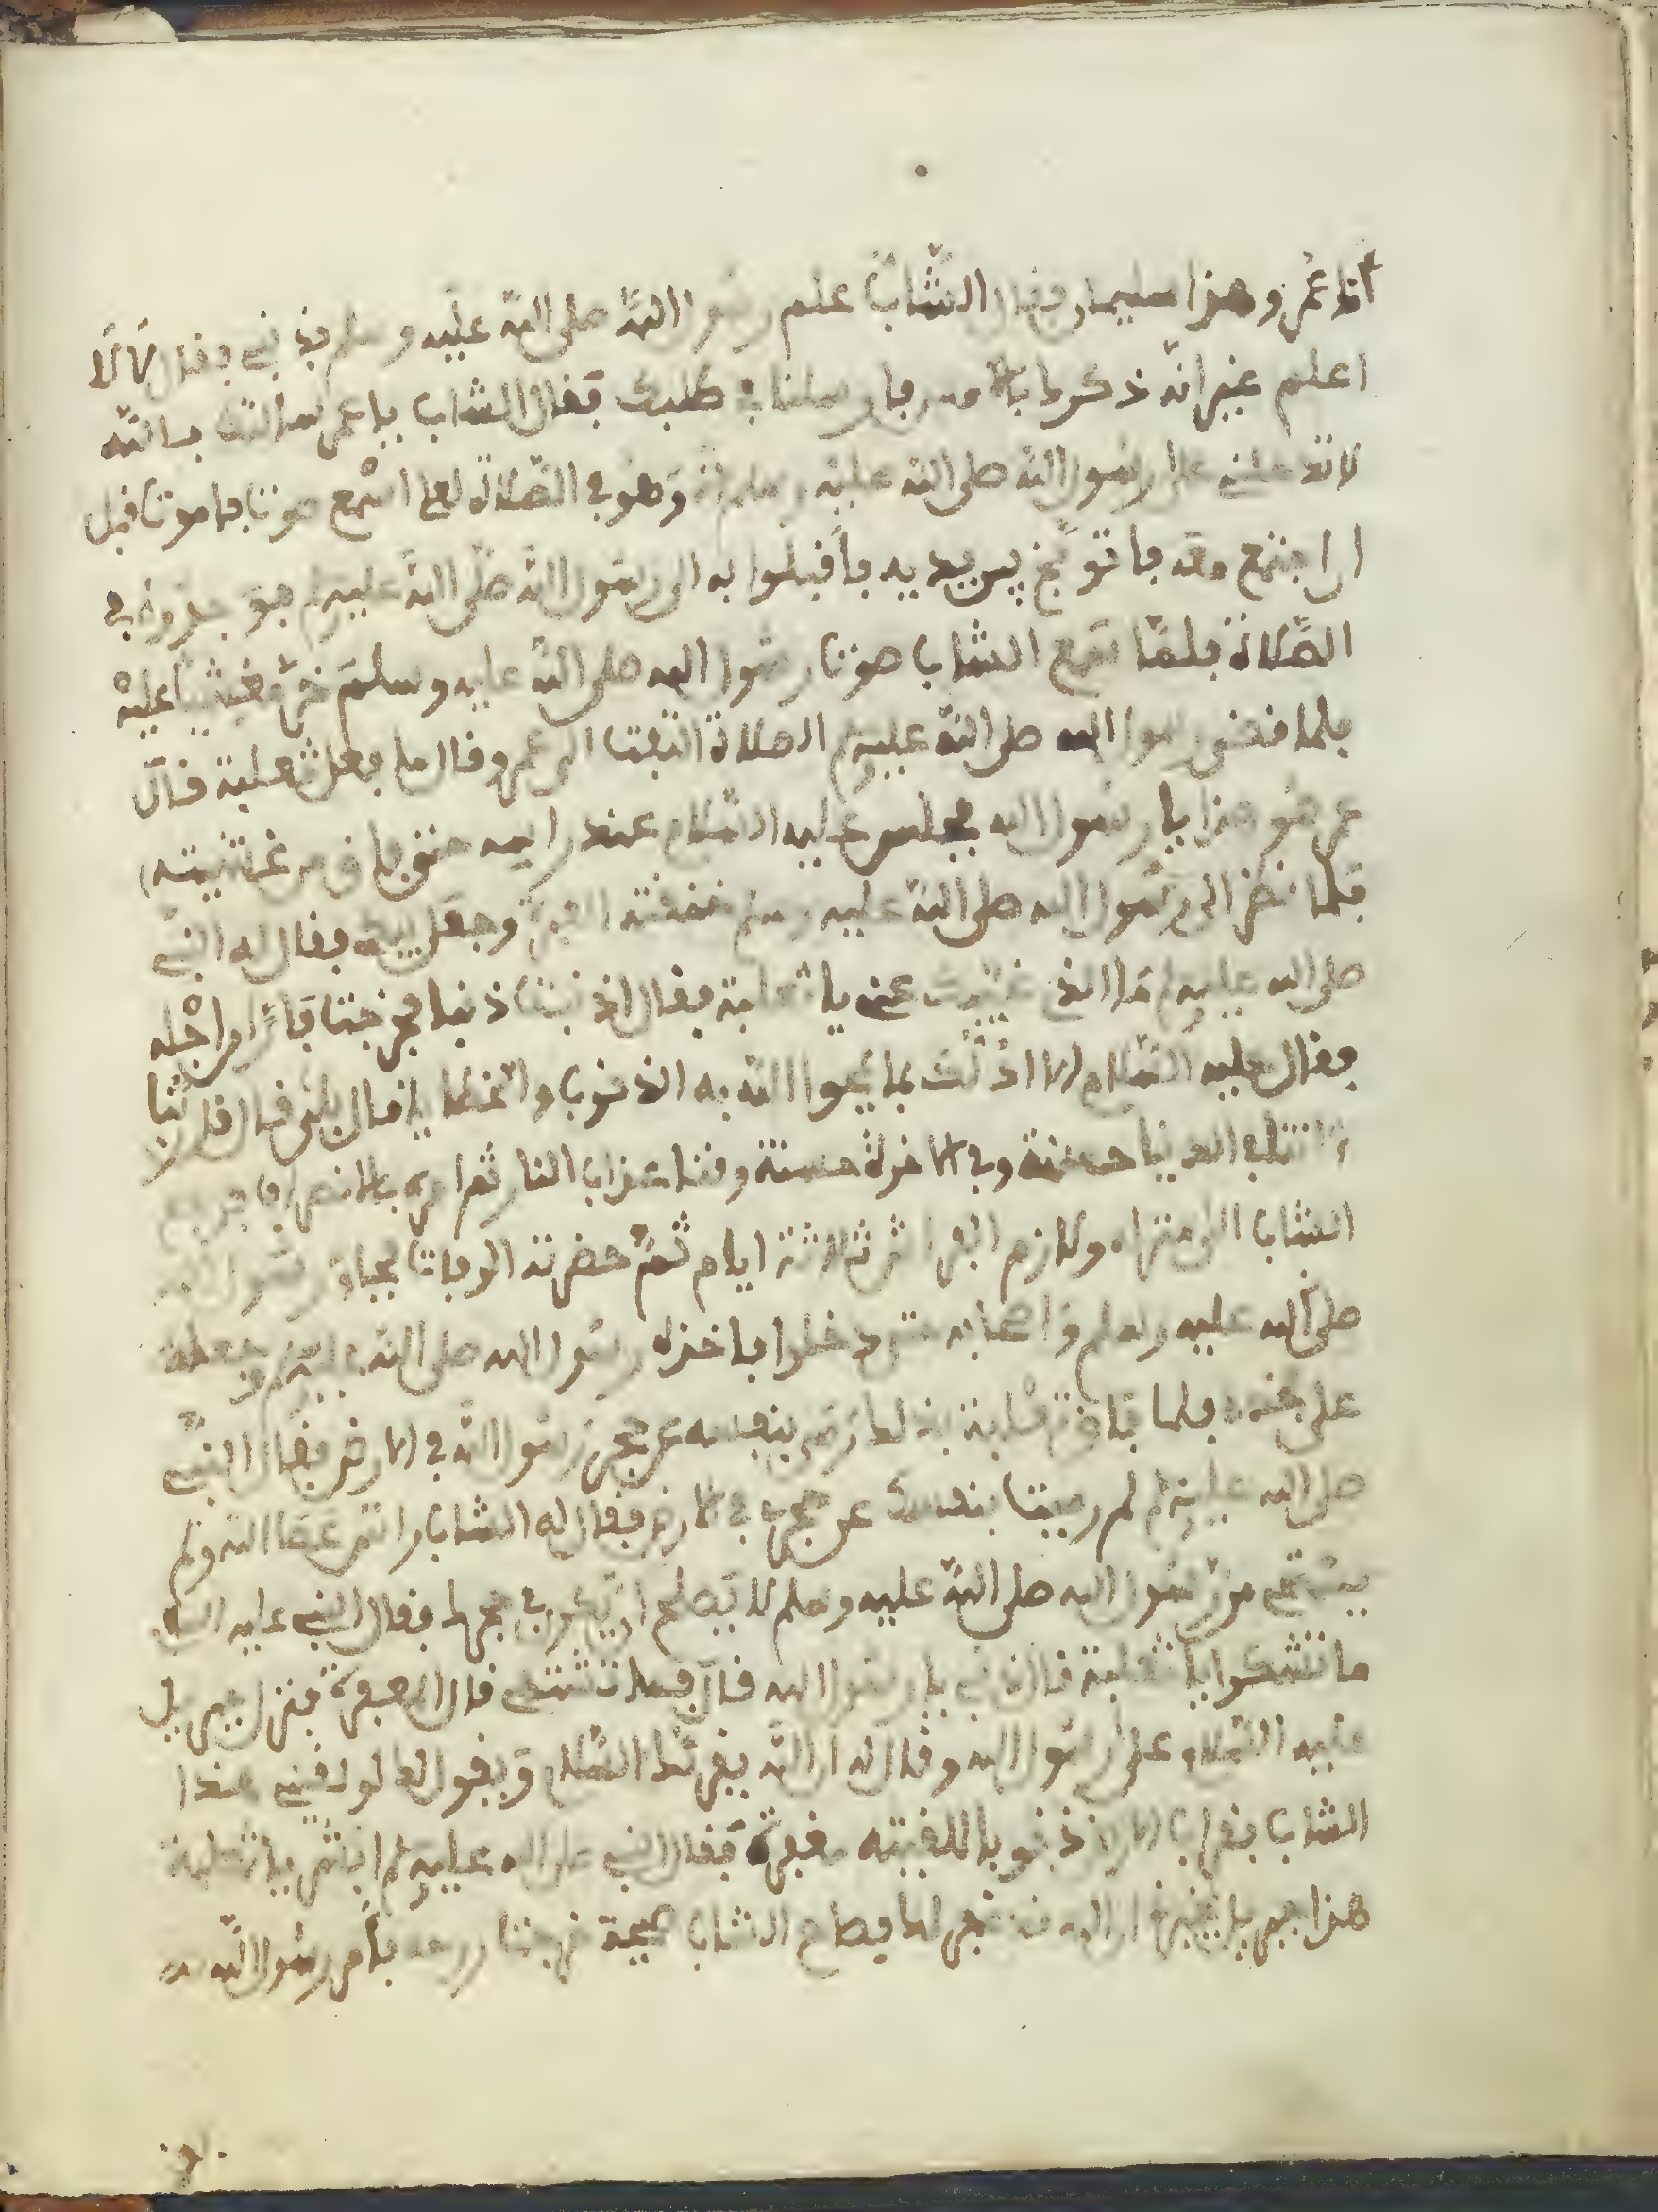 انا عمر وهذا سليمان وقال الشاب علم رسول الله صلى الله عليه وسلم بذنبي وقال لا لا
اعلم غير انه ذكرك بالامس فارسلنا في طلبك فقال الشاب يا عمر سالتك بالله
لا تدخلني على رسول الله صلى الله عليه وسلم الا وهو في الصلاة لعلى اسمع صوتا فاموت قبل
ان اجتمع معه فاتوبخ بين يديه فاقبلوا به الى رسول الله صلى الله عليه وسلم فوجدوه في
الصلاة فلما سمع الشاب صوت رسول الله صلى الله عليه وسلم خر مغشيا عليه
فلما قضى رسول الله صلى الله عليه وسلم الصلاة التفت الى عمر وقال ما فعل ثعلبة قال
عمر هو هذا يا رسول الله فجلس عليه السلام عند راسه حتى فاق من غشيته
فلما نظر الى رسول الله صلى الله عليه وسلم خنقته العبرة وجعل يبكي فقال له النبي
صلى الله عليه وسلم ما الذي غيبك عني يا ثعلبة فقال اذنبت ذنبا فخرجت فارا من اجله
فقال عليه السلام الا ادلك بما يمحوا الله به الذنوب والخطايا قال بلى قال قل ربنا
ءاتنا في الدنيا حسنة وفي الاخرة حسنة وقنا عذاب النار ثم امره بالانصراف فرجع
الشاب الى منزله ولازم الفراش ثلاثة ايام ثم حضرته الوفاة فجاء رسول الله
صلى الله عليه وسلم واصحابه حتى دخلوا فاخذه رسول الله صلى الله عليه وسلم وجعله
على فخذه فلما فاق ثعلبة رمى بنفسه عن حجر رسول الله في الارض فقال النبي
صلى الله عليه وسلم لم رميت بنفسك عن حجري في الارض فقال له الشاب ان من عصا الله ولم
يستح من رسول الله صلى الله عليه وسلم لا يصلح ان يكون في حجرك فقال النبي عليه السلام
ما تشكوا يا ثعلبة قال ذنبي يا رسول الله قال فما تشتهي قال المغفرة فنزل جبريل
عليه السلام على رسول الله وقال له ان الله يقرئك السلام ويقول لك لو لقيني هذا
الشاب بقراب الارض ذنوبا للقيته مغفرة فقال النبي صلى الله عليه وسلم ابشر يا ثعلبة
هذا جبريل يخبرني ان الله قد غفر لك فصاح الشاب صيحة خرجت روحه فامر رسول الله